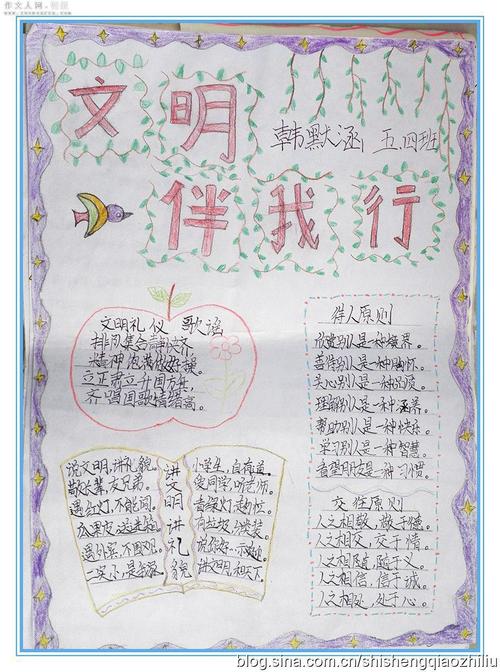 作文人网
文明
韩默涵 五.四班
伴我行
文明礼仪 歌谣
排闭集合静快齐
精神饱满做好操
立正肃立升国方尘
齐唱国歌情绪高。
待人原则
欣赏别人是一种境界。
善待别人是一种胸怀。
关心别人是一种品质。
理解别人是一种涵养。
帮助别人是一种快乐。
学习别人是一种智慧。
看望朋友是一种习惯。
交往原则
人之相敬,敬于德。
人之相交,交于情。
人之相随,随于义。
人之相信,信于诚。
人之相处,处于心。
说文明,讲礼貌。
敬长辈,友兄弟。
遇红灯,不能闯。
瓜果皮
遇外宾
讲文明讲礼貌
小学生
爱同学,听老师。
有垃圾
说你好
讲文明,和天下
blog.sina.com.cn/shishengqiaozhiliu